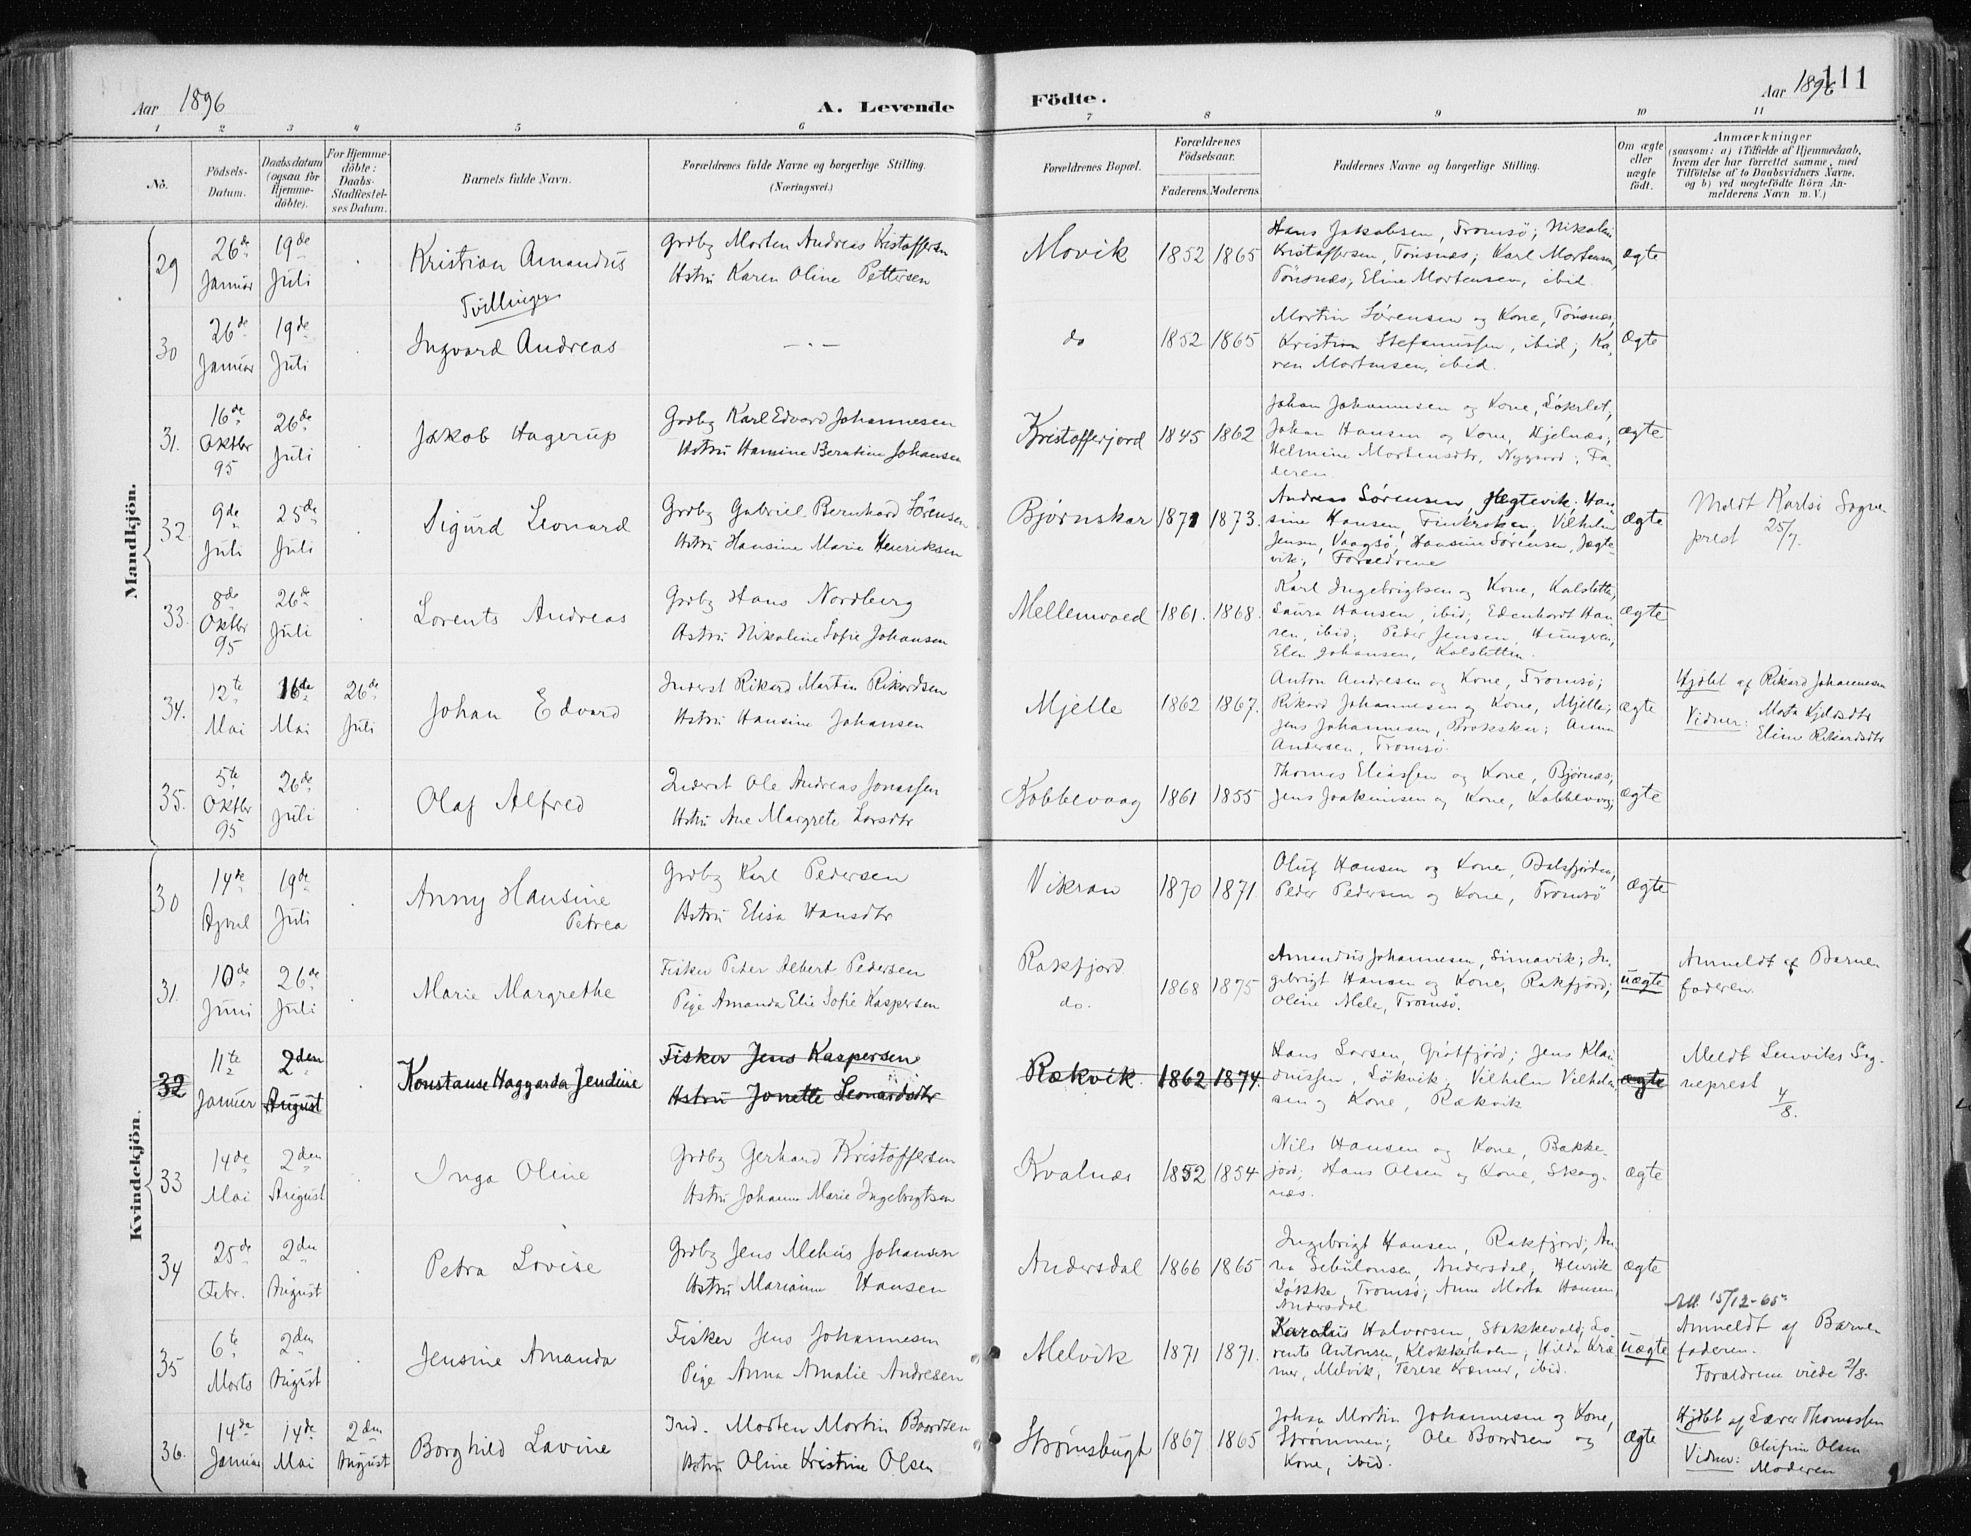 Aar 1896
A. Levende
Födte.
Aar 1896
111
1 2 3 4 5 6 7 8 9 10 11
No.
Födsels-Datum.
Daabsdatum (ogsaa for Hjemme-döbte).
For Hjemme-döbte: Daabs-Stadfæstel-ses Datum.
Barnets fulde Navn.
Forældrenes fulde Navne og borgerlige Stilling.
(Næringsvei.)
Forældrenes Bopæl.
Forældrenes Födselsaar.
Faderens. Moderens.
Faddernes Navne og borgerlige Stilling.
Om ægte eller uægte födt.
Anmærkninger
(saasom: a) i Tilfælde af Hjemmedaab,
hvem der har forrettet samme, med
Tilföielse af to Daabsvidners Navne,
og b) ved uægtefödte Börn An-
melderens Navn m. V.)
Mandkjön.
29 26de Januar 19de Juli Kristian Amandus
Grdbr Morten Andreas Kristoffersen
Hstru Karen Oline Pettersen
Movik 1852 1865
Hans Jakobsen, Tromsö; Nikolai
Kristoffersen, Tönsnæs; Karl Mortensen,
Tönsnæs, Eline Mortensen, ibid.
ægte
Tvillinger
30 26de Januar 19de Juli Ingvard Andreas
— . —
do 1852 1865
Martin Sörensen og Kone, Tönsnæs,
Kristian Stefanussen, ibid; Ka-
ren Mortensen, ibid.
Ægte
31. 16de Oktbr 95 26de Juli Jakob Hagerup
Grdbr Karl Edvard Johannesen
Hstru Hansine Berntine Johansen
Kristofferjord 1845 1862
Johan Johannesen og Kone,
Johan Hansen og Kone, Hjelnæs,
Helmine Mortensdtr, Nygaard; Fa-
deren
ægte
32. 9de Juli 25de Juli Sigurd Leonard
Grdbr Gabriel Bernhard Sörensen
Hstru Hansine Marie Henriksen
Bjørnskar 1871 1873.
Andreas Sörensen, Jægtevik; Han-
sine Hansen, Finkroken, Vilhelm
Jensen, Vaagsö, Hansine Sörensen, Jægte-
vik; Forældrene
Ægte
Meldt Karlsö Sogne-
prest 25/7.
33. 8de Oktbr 95 26de Juli Lorents Andreas
Grdbr Hans Nordberg
Hstru Nikoline Sofie Johansen
Mellemvoed 1861. 1868.
Karl Ingebrigtsen og Kone, Kalsletten,
Laura Hansen, ibid; Edenhardt Han-
sen, ibid; Peder Jensen,
Elen Johansen, Kalsletten.
ægte
34. 12te Mai 16de Mai 26de Juli Johan Edvard
Inderst Rikard Martin Rikardsen
Hstru Hansine Johansen
Mjelle 1862 1867.
Anton Andresen og Kone, Tromsö;
Rikard Johannesen og Kone, Mjelle;
Jens Johannesen, Brokskar; Anna
Andersen, Tromsö.
ægte
Hjdbt af Rikard Johannesen
Vidner: Marta Kjeldsdtr
Eline Rikardsdtr
35. 5te Oktbr 95 26de Juli Olaf Alfred
Inderst Ole Andreas Jonassen
Hstru Ane Margrete Larsdtr
Kobbevaag 1861 1855
Thomas Eliassen og Kone, Bjørnæs,
Jens Joakimsen og Kone, Kobbevaag;
ægte
Kvindekjön.
30 14de April 19de Juli Anny Hansine
Petrea
Grdbr Karl Pedersen
Hstru Elisa Hansdtr
Vikran 1870 1871
Oluf Hansen og Kone, Balsfjorden,
Peder Pedersen og Kone, Tromsö
ægte
31. 10de Juni 26de Juli Marie Margrethe
Fisker Peter Albert Pedersen
Pige Amanda Elie Sofie Kaspersen
Rakfjord
do. 1868 1875
Amandus Johannesen, Simavik; In-
gebrigt Hansen og Kone, Rakfjord;
Oline Mele, Tromsö.
uægte
Anmeldt af Barne-
faderen.
32 11te Januar 2den August Konstanse Haggarda Jendine
Fisker Jens Kaspersen
Hstru Jonette Leonardsdtr
Rækvik. 1862 1874.
Hans Larsen, Grötfjord; Jens Klau-
dnussen, Løkvik, Vilhelm Vilhelm-
sen og Kone, Rækvik
ægte
Meldt Lenviks Sog-
neprest 4/8.
33 14de Mai 2den August Inga Oline
Grdbr Gerhard Kristoffersen
Hstru Johanne Marie Ingebrigtsen
Kvalnæs 1852 1854
Nils Hansen og Kone, Bakke-
jord, Hans Olsen og Kone, Skog-
næs.
ægte
34 25de Febr. 2den August Petra Lovise
Grdbr Jens Johansen
Hstru Marianne Hansen
Andersdal 1866 1865
Ingebrigt Hansen, Rakfjord, An-
na Sebulonsen, Andersdal, Henrik
Løkke, Tromsö, Anne Marta Hansen,
Andersdal
ægte
35 6te Marts 2den August Jensine Amanda
Fisker Jens Johannesen
Pige Anna Amalie Andresen
Melvik 1871 1871.
Karolius Halvorsen, Stakkevold; Lo-
rents Antonsen, Klokkerholm, Hilda Kræ-
mer, Melvik, Terese Kræmer, ibid.
uægte
Att. 15/12-65
Anmeldt af Barne-
faderen.
Forældrene viede 2/8.
36. 14de Januar 14de Mai 2den August Borghild Lavine
Ind. Morten Martin Baardsen
Hstru Oline Kristine Olsen
Strømsbugt 1867 1865
Johan Martin Johannesen og Kone,
Strømmen; Ole Baardsen og
Kone, ibid.
ægte
Hjdbt af Lærer Thomassen
Vidner: Olufine Olsen
Moderen